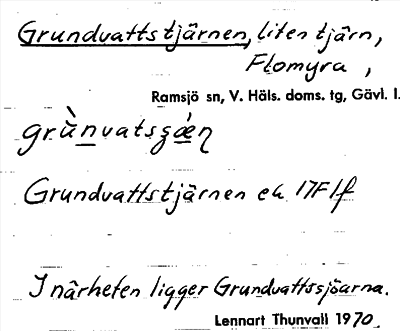 Grundvattstjärnen, liten tjärn,
Flomyra,
Ramsjö sn, V. Häls. doms. tg, Gävl. l.
Grundvattstjärnen ek 17F1f
I närheten ligger Grundvattssjöarna.
Lennart Thunvall 1970